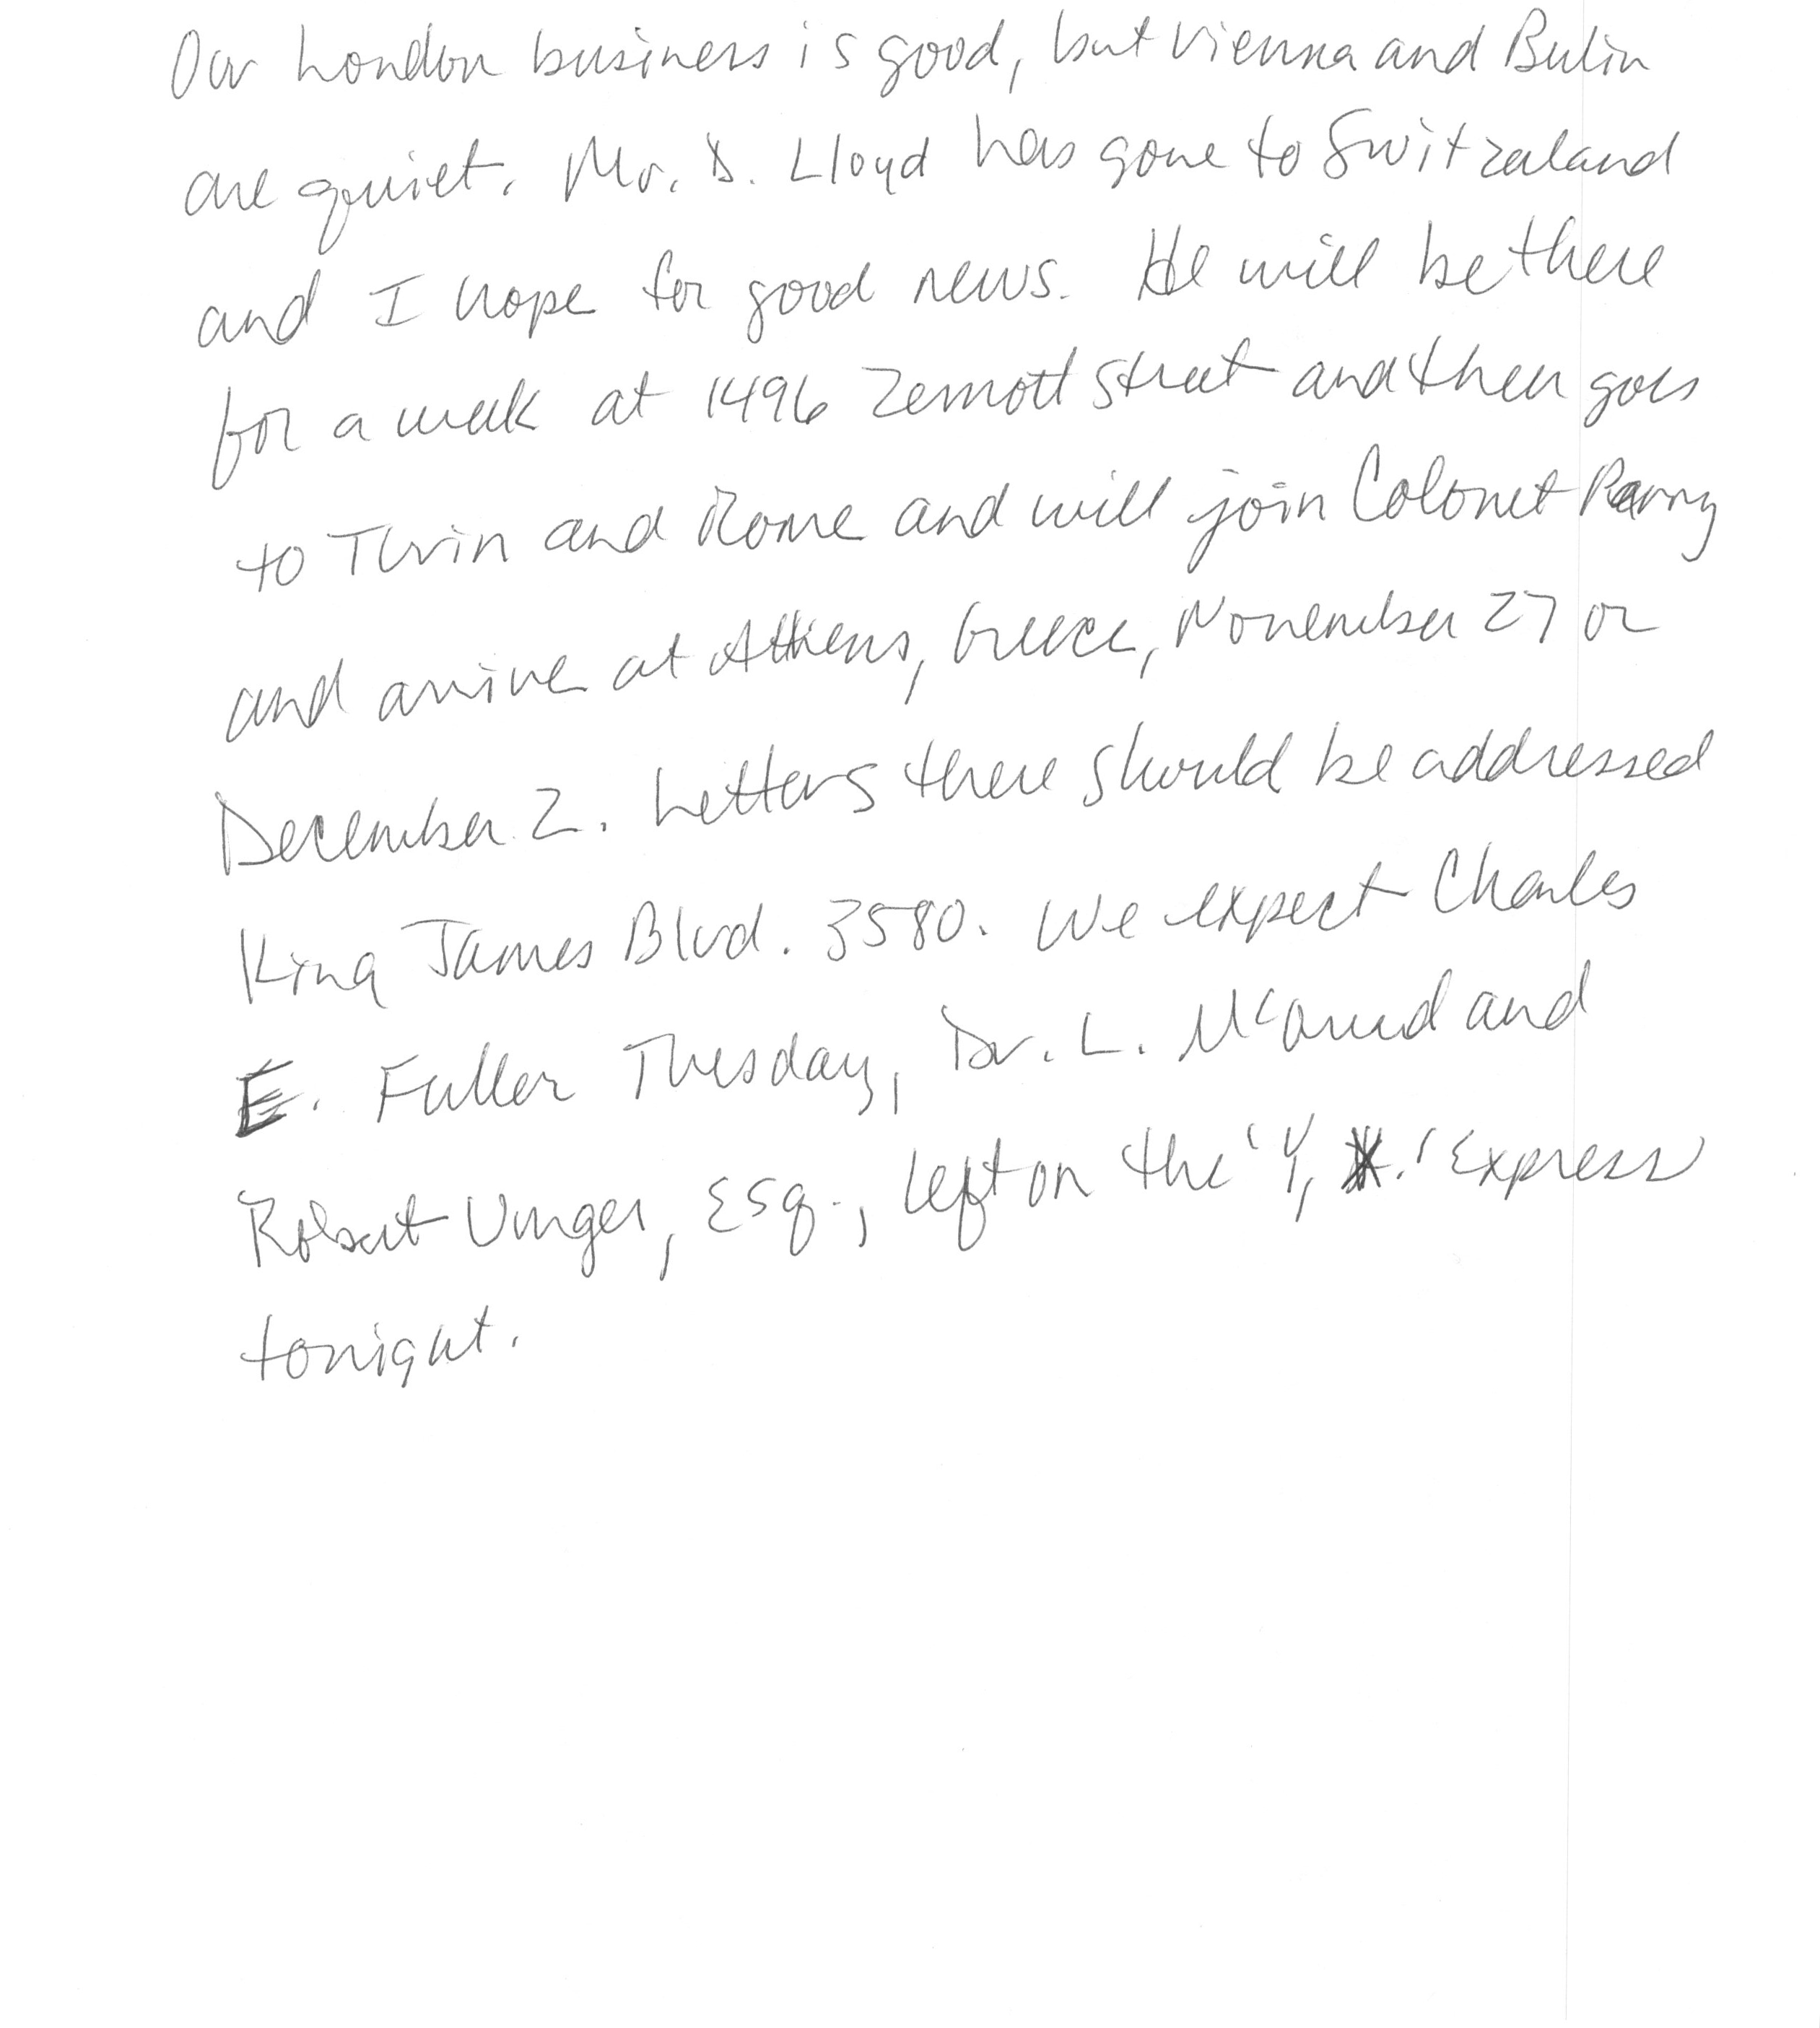 Our London business is good, but Vienna and Berlin
are quiet. Mr. D. Lloyd has gone to Switzerland
and I hope for good news. He will be there
for a week at 1496 Zermott Street and then goes
to Turin and Rome and will join Colonel Parry
and arrive at Athens, Greece, November 27 or
December 2. Letters there should be addressed
King James Blvd. 3580. We expect Charles
E. Fuller Tuesday, Dr. L. McQuaid and
Robert Unger, Esq., left on the 'Y, X.' Express
tonight.